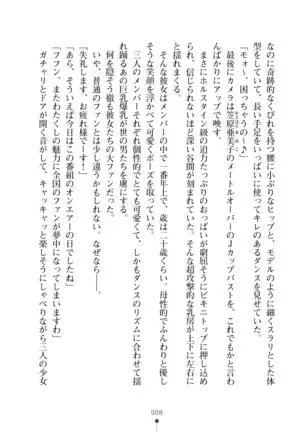 なのに奇跡的なくびれを持つ腰に小ぶりなヒップと、モデルのように細くスラリとした体
型をしていて、長い手足をいっぱいに使ってキレのあるダンスを見せていた。
「モォ～、困っちゃうの～♪」
最後にカメラは笠原亜美子のメートルオーバーのJカップバストを、これでもかとふ
んだんばかりにアップで映す。
まさにホルスタイン級の迫力たっぷりのおっぱいが窮屈そうにビキニトップに押し込め
られ、信じられないほど深い谷間が刻まれていた。そんな超攻撃的な乳房が上下に左右に
と揺れまくる。
そんな彼女はメンバーの中で一番年上で、歳は二十歳くらい。母性的でふんわりと優し
そうな笑顔を浮かべて可愛くポーズを取っていた。
三人のメンバーそれぞれ個性的でとても可愛くて、しかもダンスのリズムに合わせて揺
れ踊るあの巨乳爆乳が世の男たちを虜にする。
そんな例に違わず徹も彼女たちの大ファンだった。
だが、普通のファンとは少し違うかもしれない。なぜなら――。
「失礼します。お疲れ様です！」
「あら、そういえば今日はこの番組のオンエアーの日でしたね」
「フフン、またわたくしの魅力に全国のファンが夢中になってしまいますわ」
ガチャリとドアが開く音がして、キャッキャッと楽しそうにしゃべりながら三人の少女
008